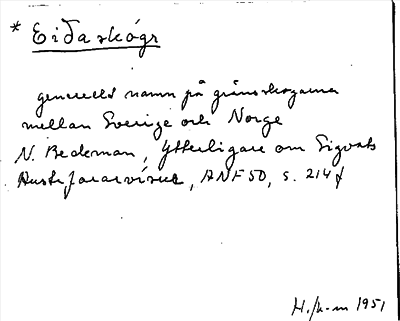 * Eiðaskógr
generellt namn på gränsskogarna
mellan Sverige och Norge
N. Beckman, Ytterligare om Sigvats
Austrfararvísur, ANF 50, s. 214 f
H. /k-m 1951